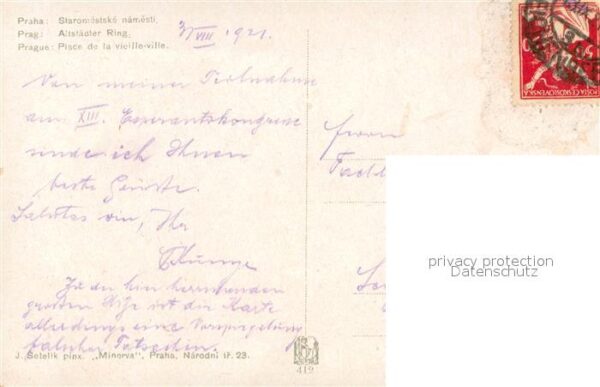 Praha: Staroměstské náměstí.
Prag: Altstädter Ring.
Prague: Place de la vieille-ville.
3/VIII 1921.
Von meiner Teilnahme
am XIII. Esperantokongresse
sende ich Ihnen
beste Grüsse.
Salutas vin, Ihr
Kunze
In der hier herrschenden
grossen Hitze ist die Karte
allerdings eine Vorspiegelung
falscher Tatsachen.
Herrn
J. Šetelík pinx. „Minerva", Praha, Národní tř. 23.
412
POŠTA ČESKOSLOVENSKÁ
privacy protection
Datenschutz